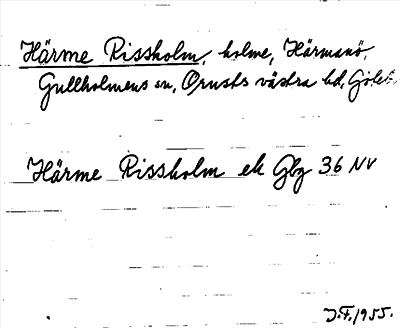 Härme Rissholm, holme, Härmanö,
Gullholmens sn, Orusts västra hd, Göteb.
Härme Rissholm ek Gbg 36 NV
J.F. 1955.